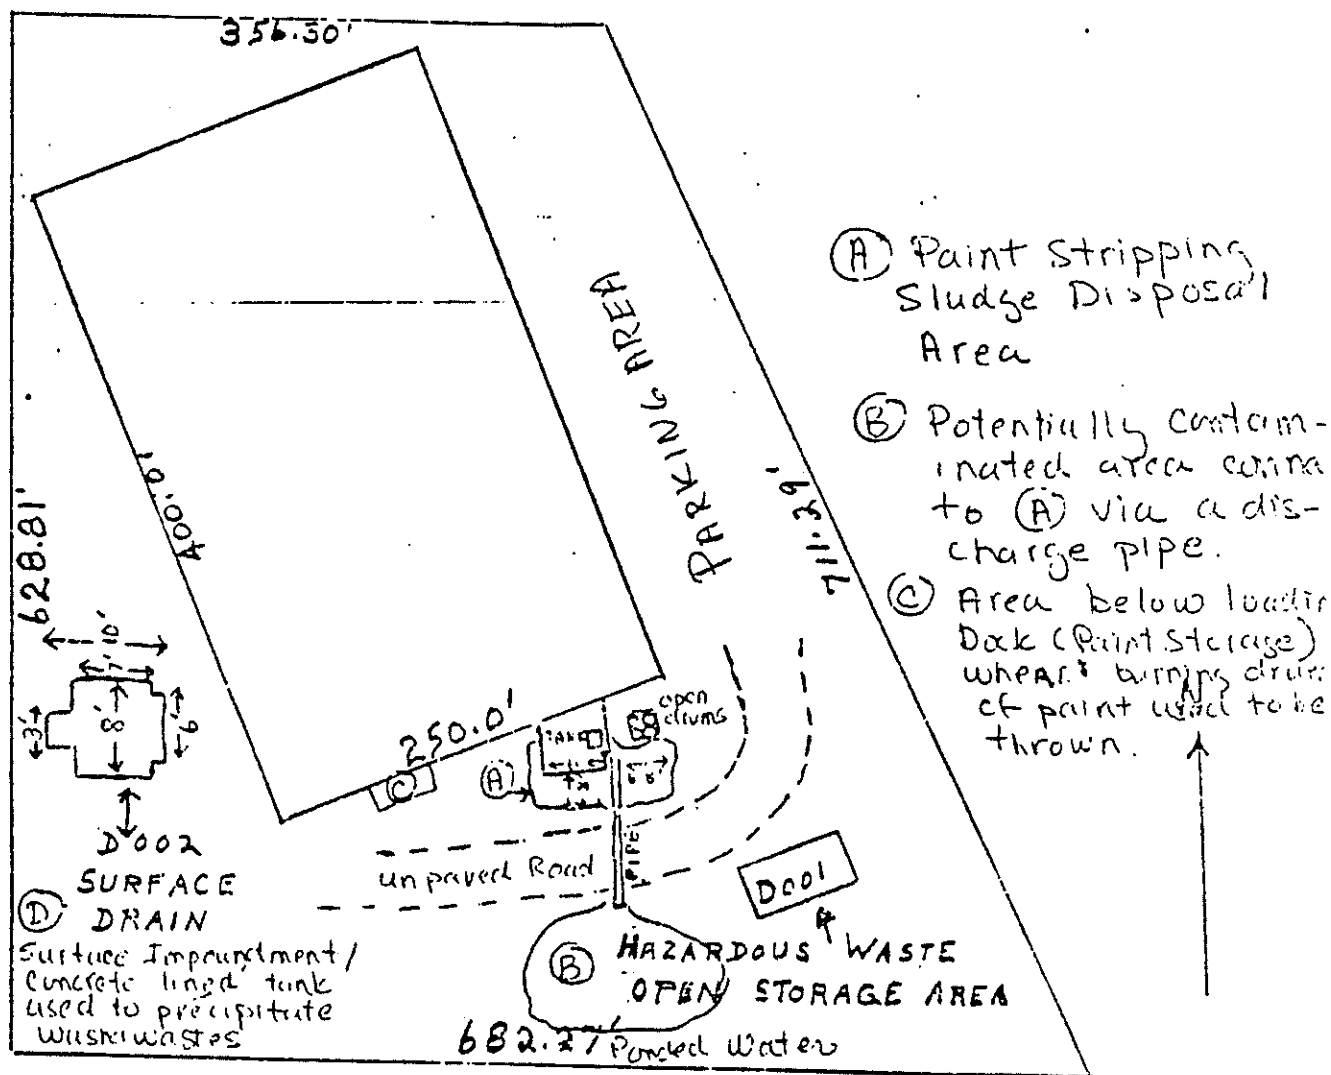 356.30'
PARKING AREA
400.0'
628.81'
711.39'
250.0'
10'
7'
8'
3'
6'
D002
SURFACE
DRAIN
(D)
Surface Impoundment/
Concrete lined tank
used to precipitate
(A)
TANK
open
drums
(C)
PIPE
unpaved Road
D001
(B)
HAZARDOUS WASTE
OPEN STORAGE AREA
682.27'
Ponded Water
(A) Paint Stripping
Sludge Disposal
Area
(B) Potentially Contam-
inated area
to (A) via a dis-
charge pipe.
(C) Area below loadin
Dock (Paint Storage)
where burning drum
of paint used to be
thrown.